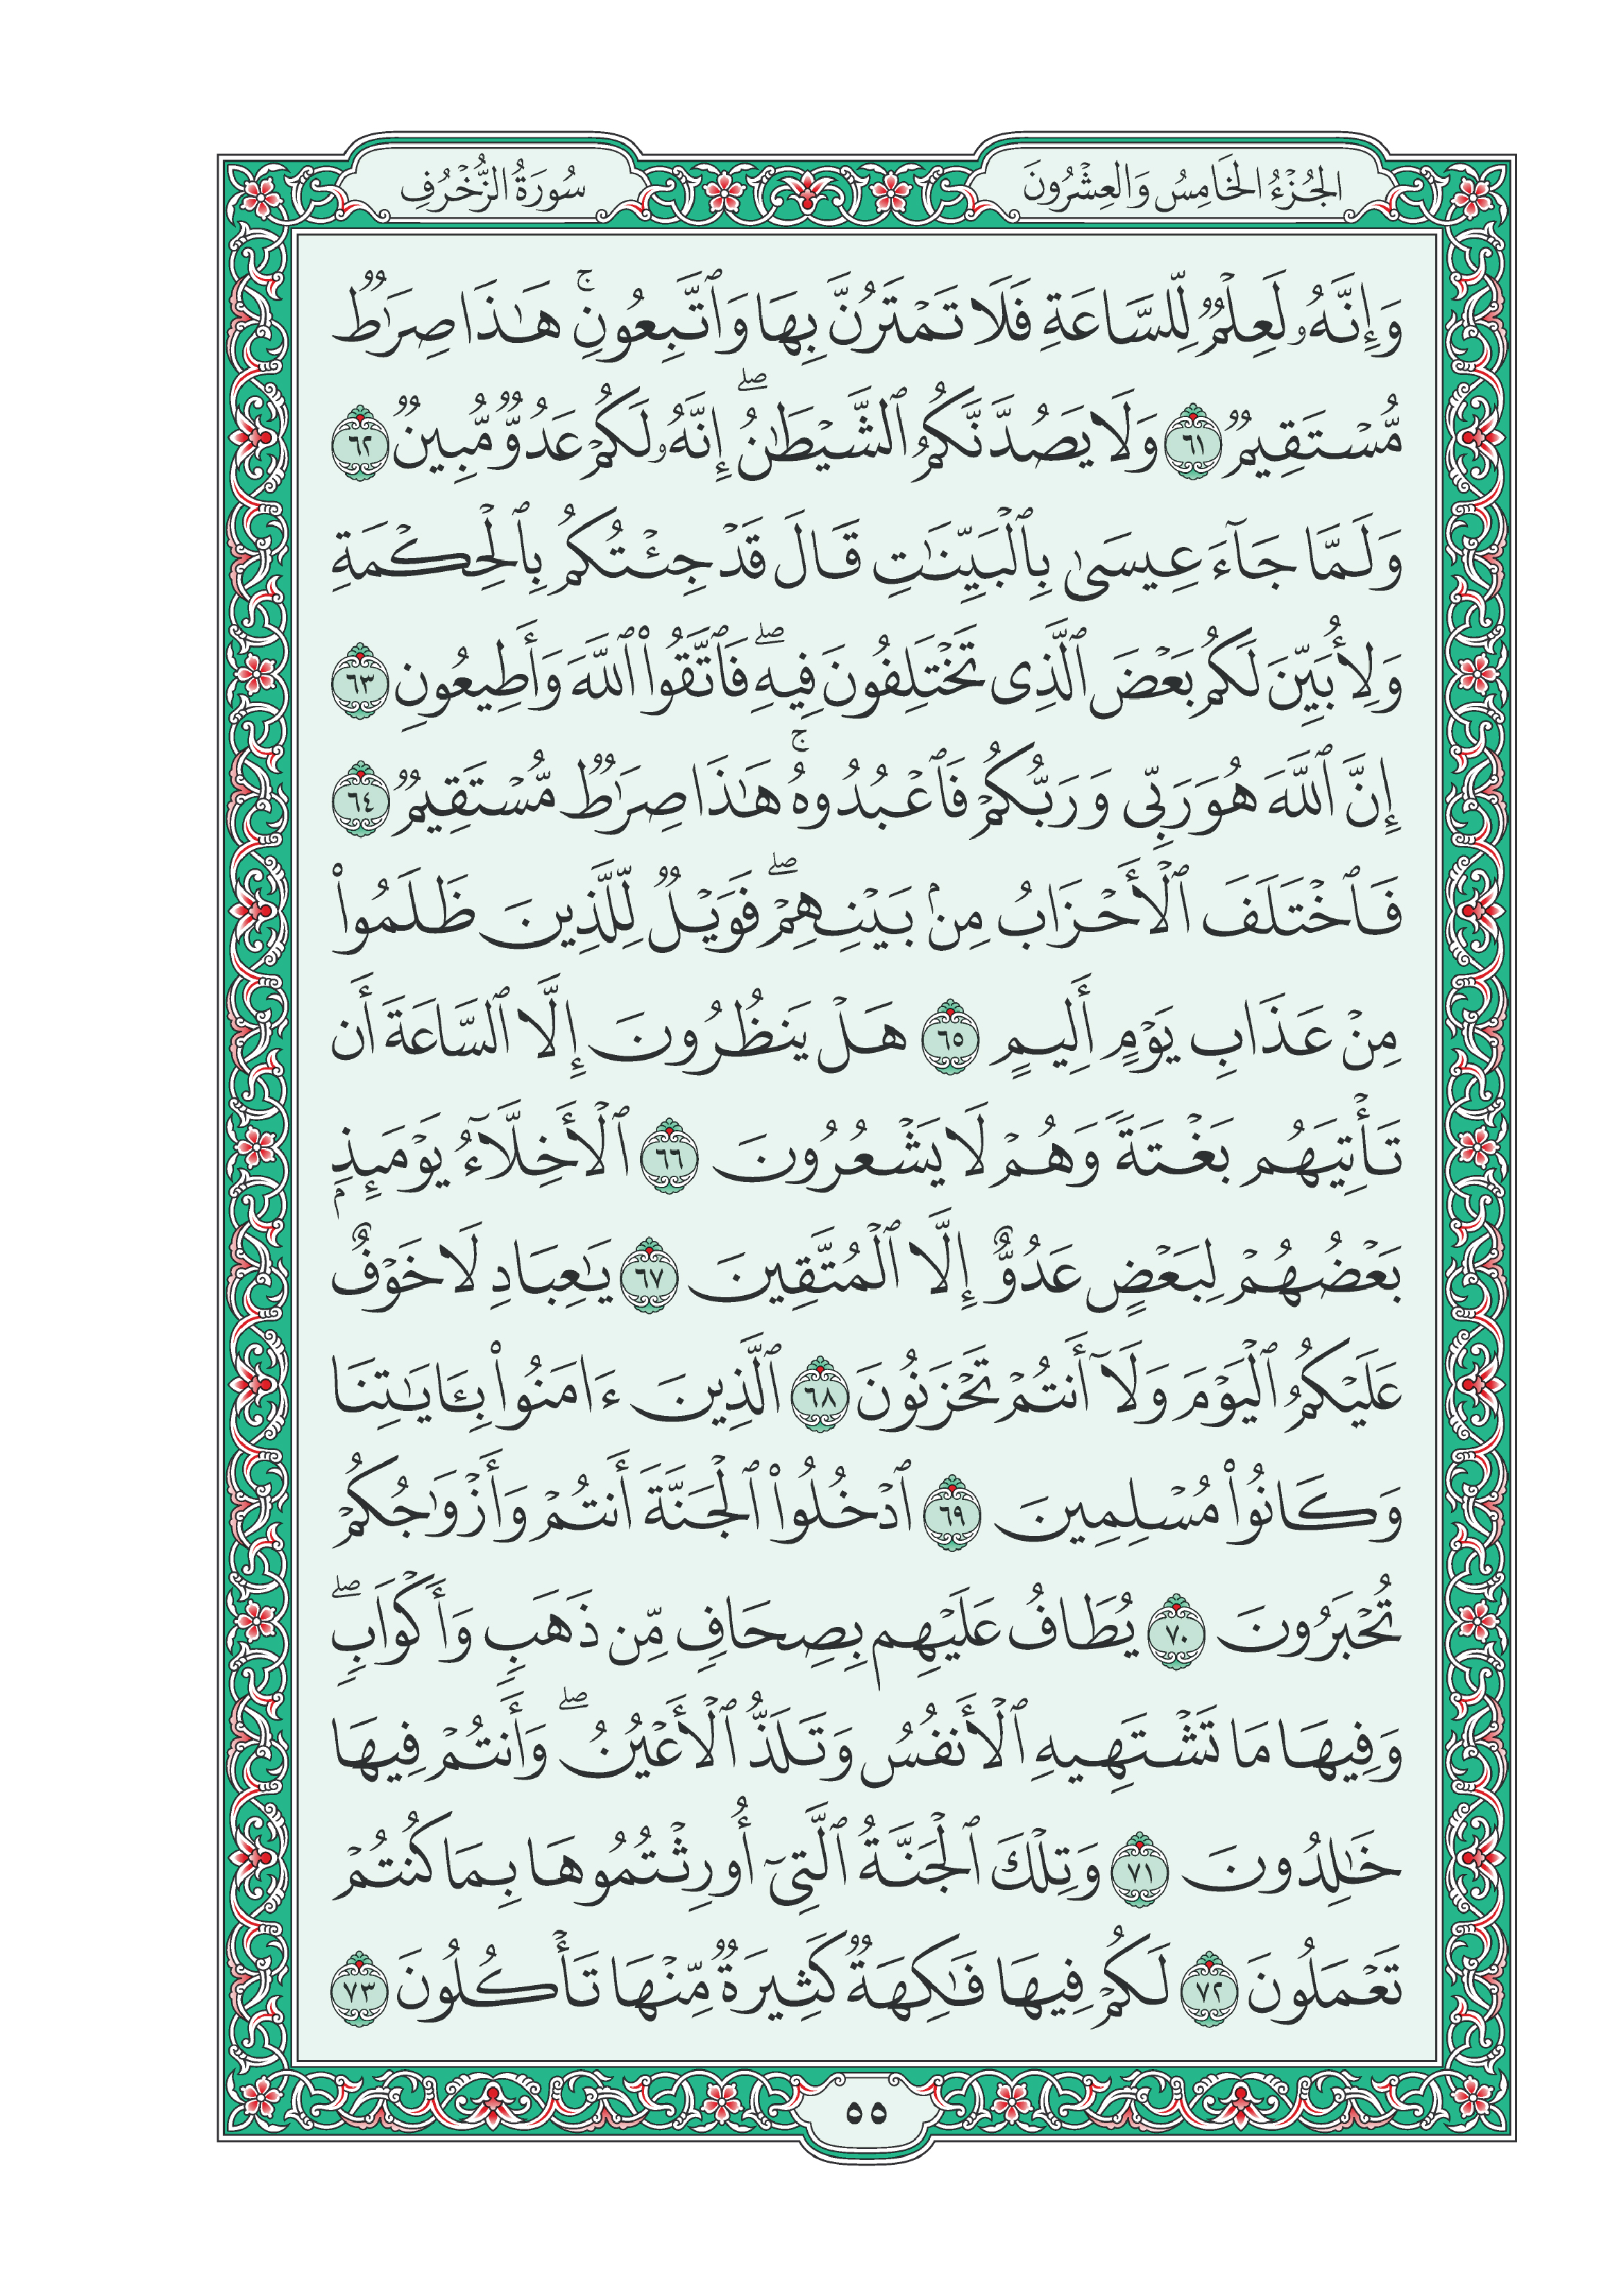 الجُزْءُ الخَامِسُ وَالعِشْرُونَ
سُورَةُ الزُّخْرُفِ
وَإِنَّهُۥ لَعِلْمٌۭ لِّلسَّاعَةِ فَلَا تَمْتَرُنَّ بِهَا وَٱتَّبِعُونِ ۚ هَـٰذَا صِرَٰطٌۭ
مُّسْتَقِيمٌۭ ٦١ وَلَا يَصُدَّنَّكُمُ ٱلشَّيْطَـٰنُ ۖ إِنَّهُۥ لَكُمْ عَدُوٌّۭ مُّبِينٌۭ ٦٢
وَلَمَّا جَآءَ عِيسَىٰ بِٱلْبَيِّنَـٰتِ قَالَ قَدْ جِئْتُكُم بِٱلْحِكْمَةِ
وَلِأُبَيِّنَ لَكُم بَعْضَ ٱلَّذِى تَخْتَلِفُونَ فِيهِ ۖ فَٱتَّقُوا۟ ٱللَّهَ وَأَطِيعُونِ ٦٣
إِنَّ ٱللَّهَ هُوَ رَبِّى وَرَبُّكُمْ فَٱعْبُدُوهُ ۚ هَـٰذَا صِرَٰطٌۭ مُّسْتَقِيمٌۭ ٦٤
فَٱخْتَلَفَ ٱلْأَحْزَابُ مِنۢ بَيْنِهِمْ ۖ فَوَيْلٌۭ لِّلَّذِينَ ظَلَمُوا۟
مِنْ عَذَابِ يَوْمٍ أَلِيمٍ ٦٥ هَلْ يَنظُرُونَ إِلَّا ٱلسَّاعَةَ أَن
تَأْتِيَهُم بَغْتَةًۭ وَهُمْ لَا يَشْعُرُونَ ٦٦ ٱلْأَخِلَّآءُ يَوْمَئِذٍۭ
بَعْضُهُمْ لِبَعْضٍ عَدُوٌّ إِلَّا ٱلْمُتَّقِينَ ٦٧ يَـٰعِبَادِ لَا خَوْفٌ
عَلَيْكُمُ ٱلْيَوْمَ وَلَآ أَنتُمْ تَحْزَنُونَ ٦٨ ٱلَّذِينَ ءَامَنُوا۟ بِـَٔايَـٰتِنَا
وَكَانُوا۟ مُسْلِمِينَ ٦٩ ٱدْخُلُوا۟ ٱلْجَنَّةَ أَنتُمْ وَأَزْوَٰجُكُمْ
تُحْبَرُونَ ٧٠ يُطَافُ عَلَيْهِم بِصِحَافٍۢ مِّن ذَهَبٍۢ وَأَكْوَابٍۢ ۖ
وَفِيهَا مَا تَشْتَهِيهِ ٱلْأَنفُسُ وَتَلَذُّ ٱلْأَعْيُنُ ۖ وَأَنتُمْ فِيهَا
خَـٰلِدُونَ ٧١ وَتِلْكَ ٱلْجَنَّةُ ٱلَّتِىٓ أُورِثْتُمُوهَا بِمَا كُنتُمْ
تَعْمَلُونَ ٧٢ لَكُمْ فِيهَا فَـٰكِهَةٌۭ كَثِيرَةٌۭ مِّنْهَا تَأْكُلُونَ ٧٣
٥٥